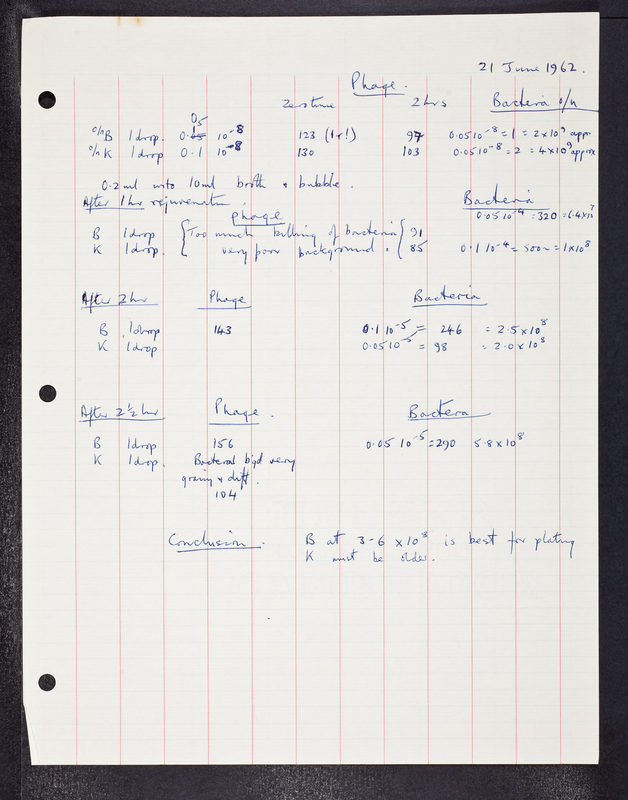 21 June 1962.
Phage.
Zero time 2 hrs Bacteria o/n
o/n B 1 drop. 0.1 05 10⁻⁸ 123 (1 r!) 97 0.05 10⁻⁸ = 1 = 2 x 10⁹ appr
o/n K 1 drop 0.1 10⁻⁸ 130 103 0.05 10⁻⁸ = 2 = 4 x 10⁹ approx
0.2 ml into 10 ml broth & bubble.
After 1 hr rejuvenatn. Bacteria
phage 0.05 10⁻⁴ = 320 = 6.4x10⁷
B 1 drop { Too much killing of bacteria { 91
K 1 drop. { very poor background. { 85 0.1 10⁻⁴ = 500~ = 1x10⁸
After 2 hr Phage Bacteria
B 1 drop 143 0.1 10⁻⁵ = 246 = 2.5 x 10⁸
K 1 drop 0.05 10⁻⁵ = 98 = 2.0 x 10⁸
After 2 ½ hr Phage. Bacteria
B 1 drop 156 0.05 10⁻⁵ = 290 5.8 x 10⁸
K 1 drop. Bacterial bgd very
grainy & diff.
104
Conclusion. B at 3-6 x 10⁸ is best for plating
K must be older.